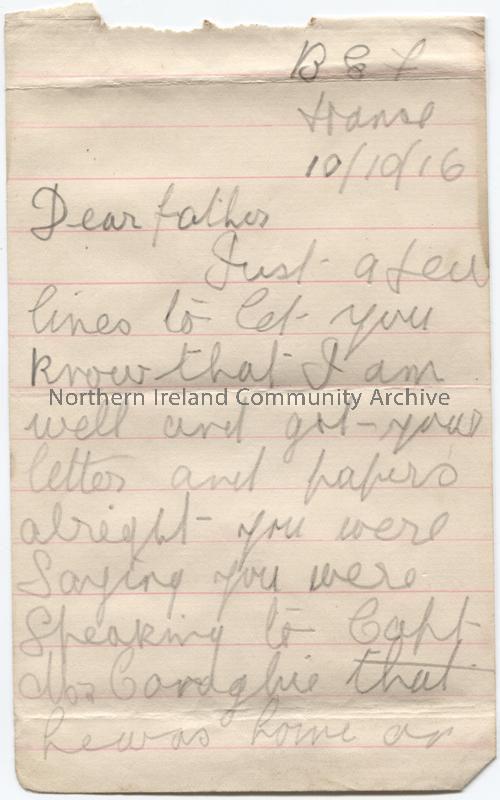 B E F
France
10/10/16
Dear father
Just a few
lines to let you
know that I am
Northern Ireland Community Archive
well and got your
letter and papers
alright you were
Saying you were
Speaking to Capt
that
he was home on